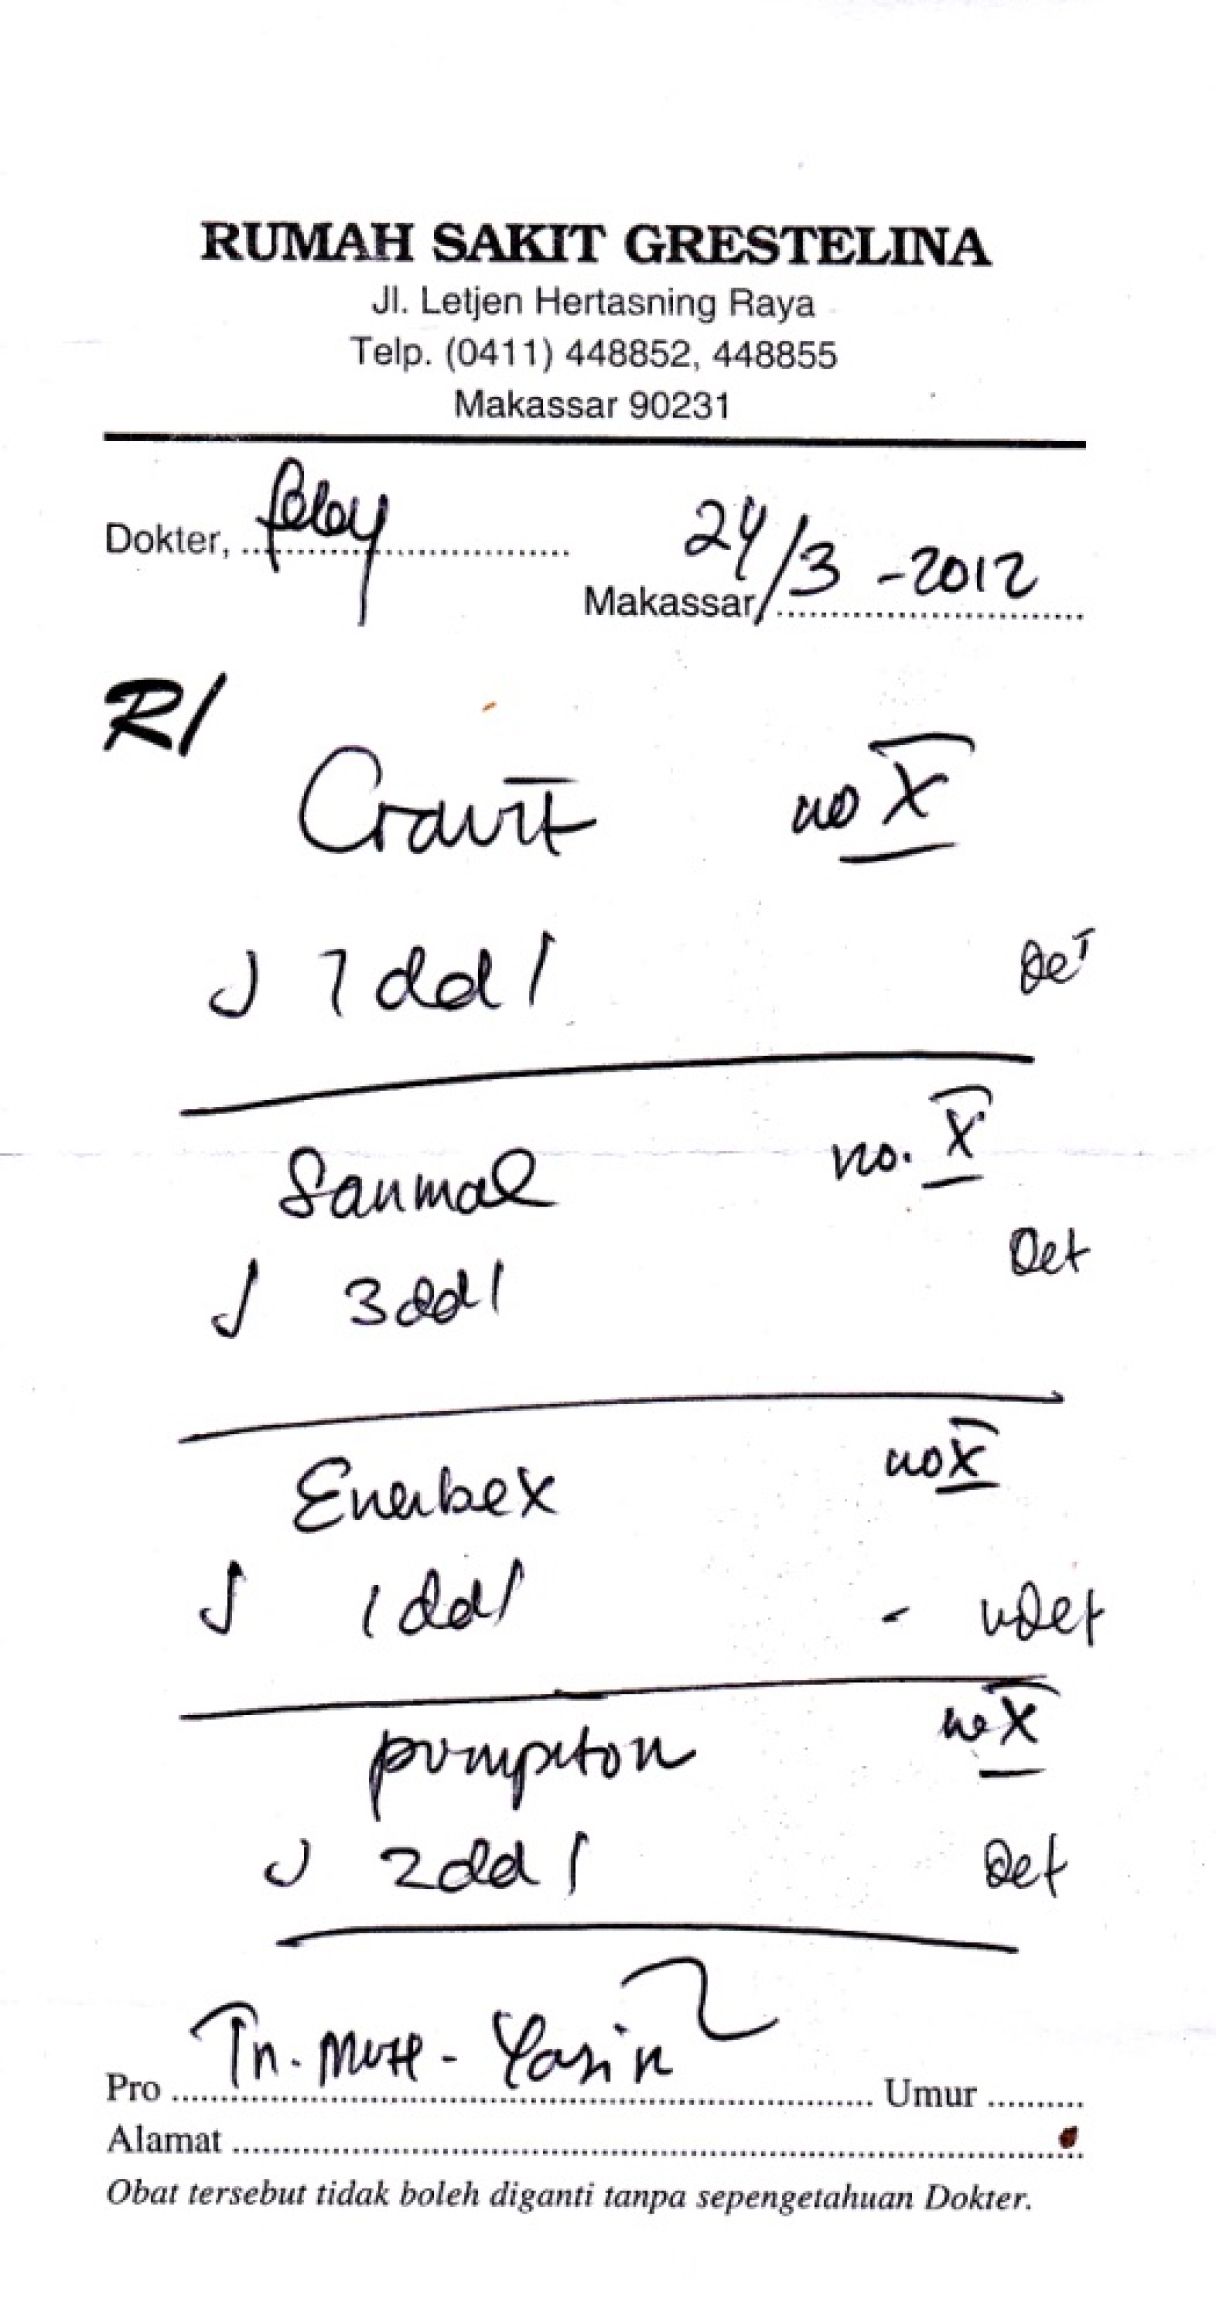 RUMAH SAKIT GRESTELINA
Jl. Letjen Hertasning Raya
Telp. (0411) 448852, 448855
Makassar 90231
Dokter, ..................
Makassar, 24/3 -2012
R/
Cravit no X
1 dd 1 det
Sanmol no. X
3 dd 1 det
Enerbex no X
1 dd 1 - det
pumpiton no X
2 dd 1 det
Pro Tn. Muh - Yasin Umur ..........
Alamat ..........
Obat tersebut tidak boleh diganti tanpa sepengetahuan Dokter.